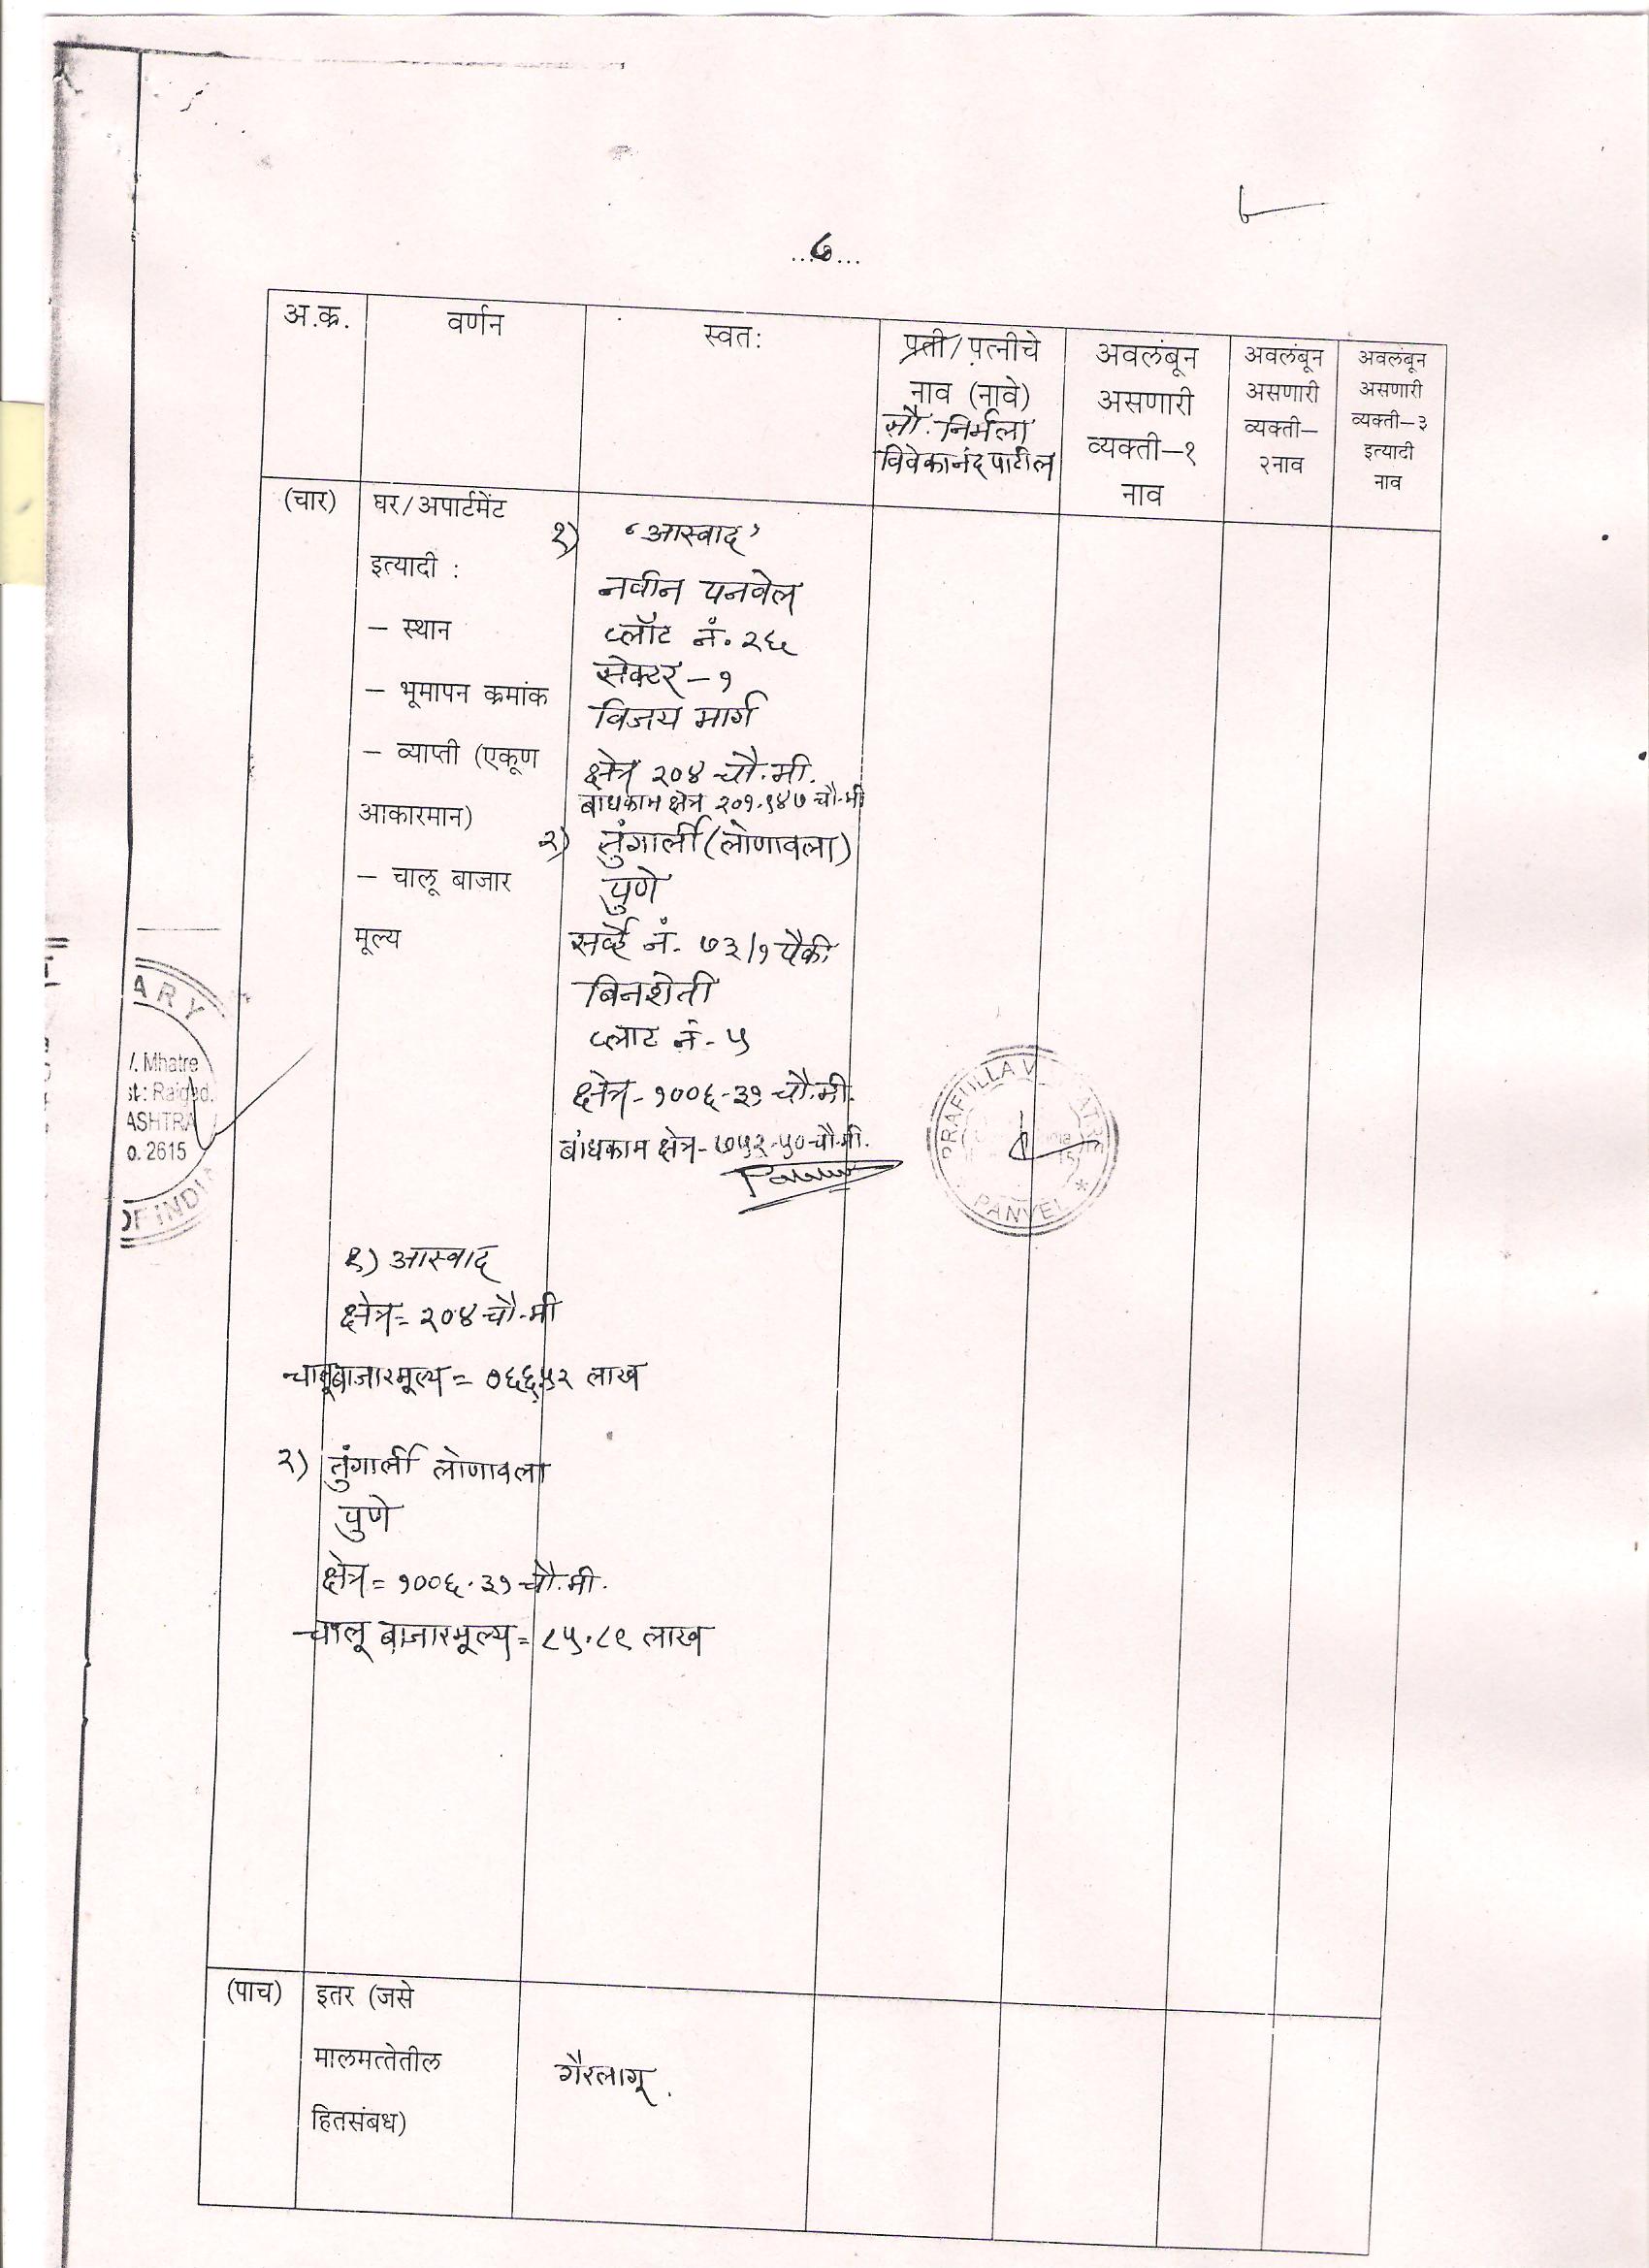 ...७...
अ.क्र.
वर्णन
स्वतः
प्रती/पत्नीचे
नाव (नावे)
सौ. निर्मला
विवेकानंद पाटील
अवलंबून
असणारी
व्यक्ती–१
नाव
अवलंबून
असणारी
व्यक्ती–
२नाव
अवलंबून
असणारी
व्यक्ती–३
इत्यादी
नाव
(चार)
घर/अपार्टमेंट
इत्यादी :
– स्थान
– भूमापन क्रमांक
– व्याप्ती (एकूण
आकारमान)
– चालू बाजार
मूल्य
१) ‘आस्वाद’
नवीन पनवेल
प्लॉट नं. २६
सेक्टर – १
विजय मार्ग
क्षेत्र २०४ चौ.मी.
बांधकाम क्षेत्र २०१.९४७ चौ.मी
२) तुंगार्ली (लोणावला)
पुणे
सर्व्हे नं. ७३/१ पैकी
बिनशेती
प्लाट नं - ५
क्षेत्र - १००६-३१ चौ.मी.
बांधकाम क्षेत्र - ७५२-५० चौ.मी.
ARY
/. Mhatre
st.: Raigad.
ASHTRA
o. 2615
OF INDIA
PRAFULLA V
PANVEL *
१) आस्वाद
क्षेत्र = २०४ चौ.मी
चालूबाजारमूल्य = ०६६.५२ लाख
२) तुंगार्ली लोणावला
पुणे
क्षेत्र = १००६.३१ चौ.मी.
चालू बाजारमूल्य = ८५.८९ लाख
(पाच)
इतर (जसे
मालमत्तेतील
हितसंबध)
गैरलागू.